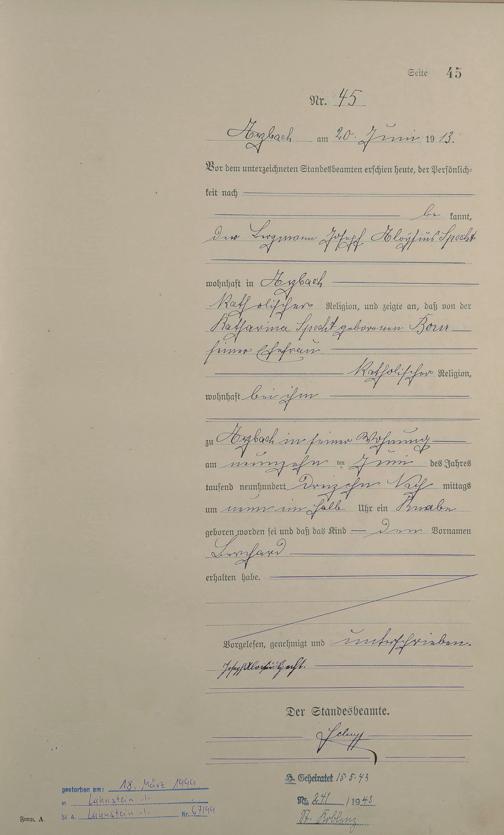 Seite 45
Nr. 45
Arzbach am 20. Juni 1913.
Vor dem unterzeichneten Standesbeamten erschien heute, der Persönlich-
keit nach
be kannt,
der Bergmann Joseph Aloysius Specht
wohnhaft in Arzbach
katholischer Religion, und zeigte an, daß von der
Katharina Specht geborenen Born
seiner Ehefrau
katholischer Religion,
wohnhaft bei ihm
zu Arzbach in seiner Wohnung
am neunzehn ten Juni des Jahres
tausend neunhundert dreizehn Nach mittags
um Uhr ein Knabe
geboren worden sei und daß das Kind den Vornamen
Bernhard
erhalten habe.
Vorgelesen, genehmigt und unterschrieben.
Joseph Aloysius Specht.
Der Standesbeamte.
Geheiratet 15.5.43
Nr. 241 /1943
St. A. Koblenz
gestorben am: 18. März 1994
in Lahnstein
St A. Lahnstein Nr. 67/94
Form. A.